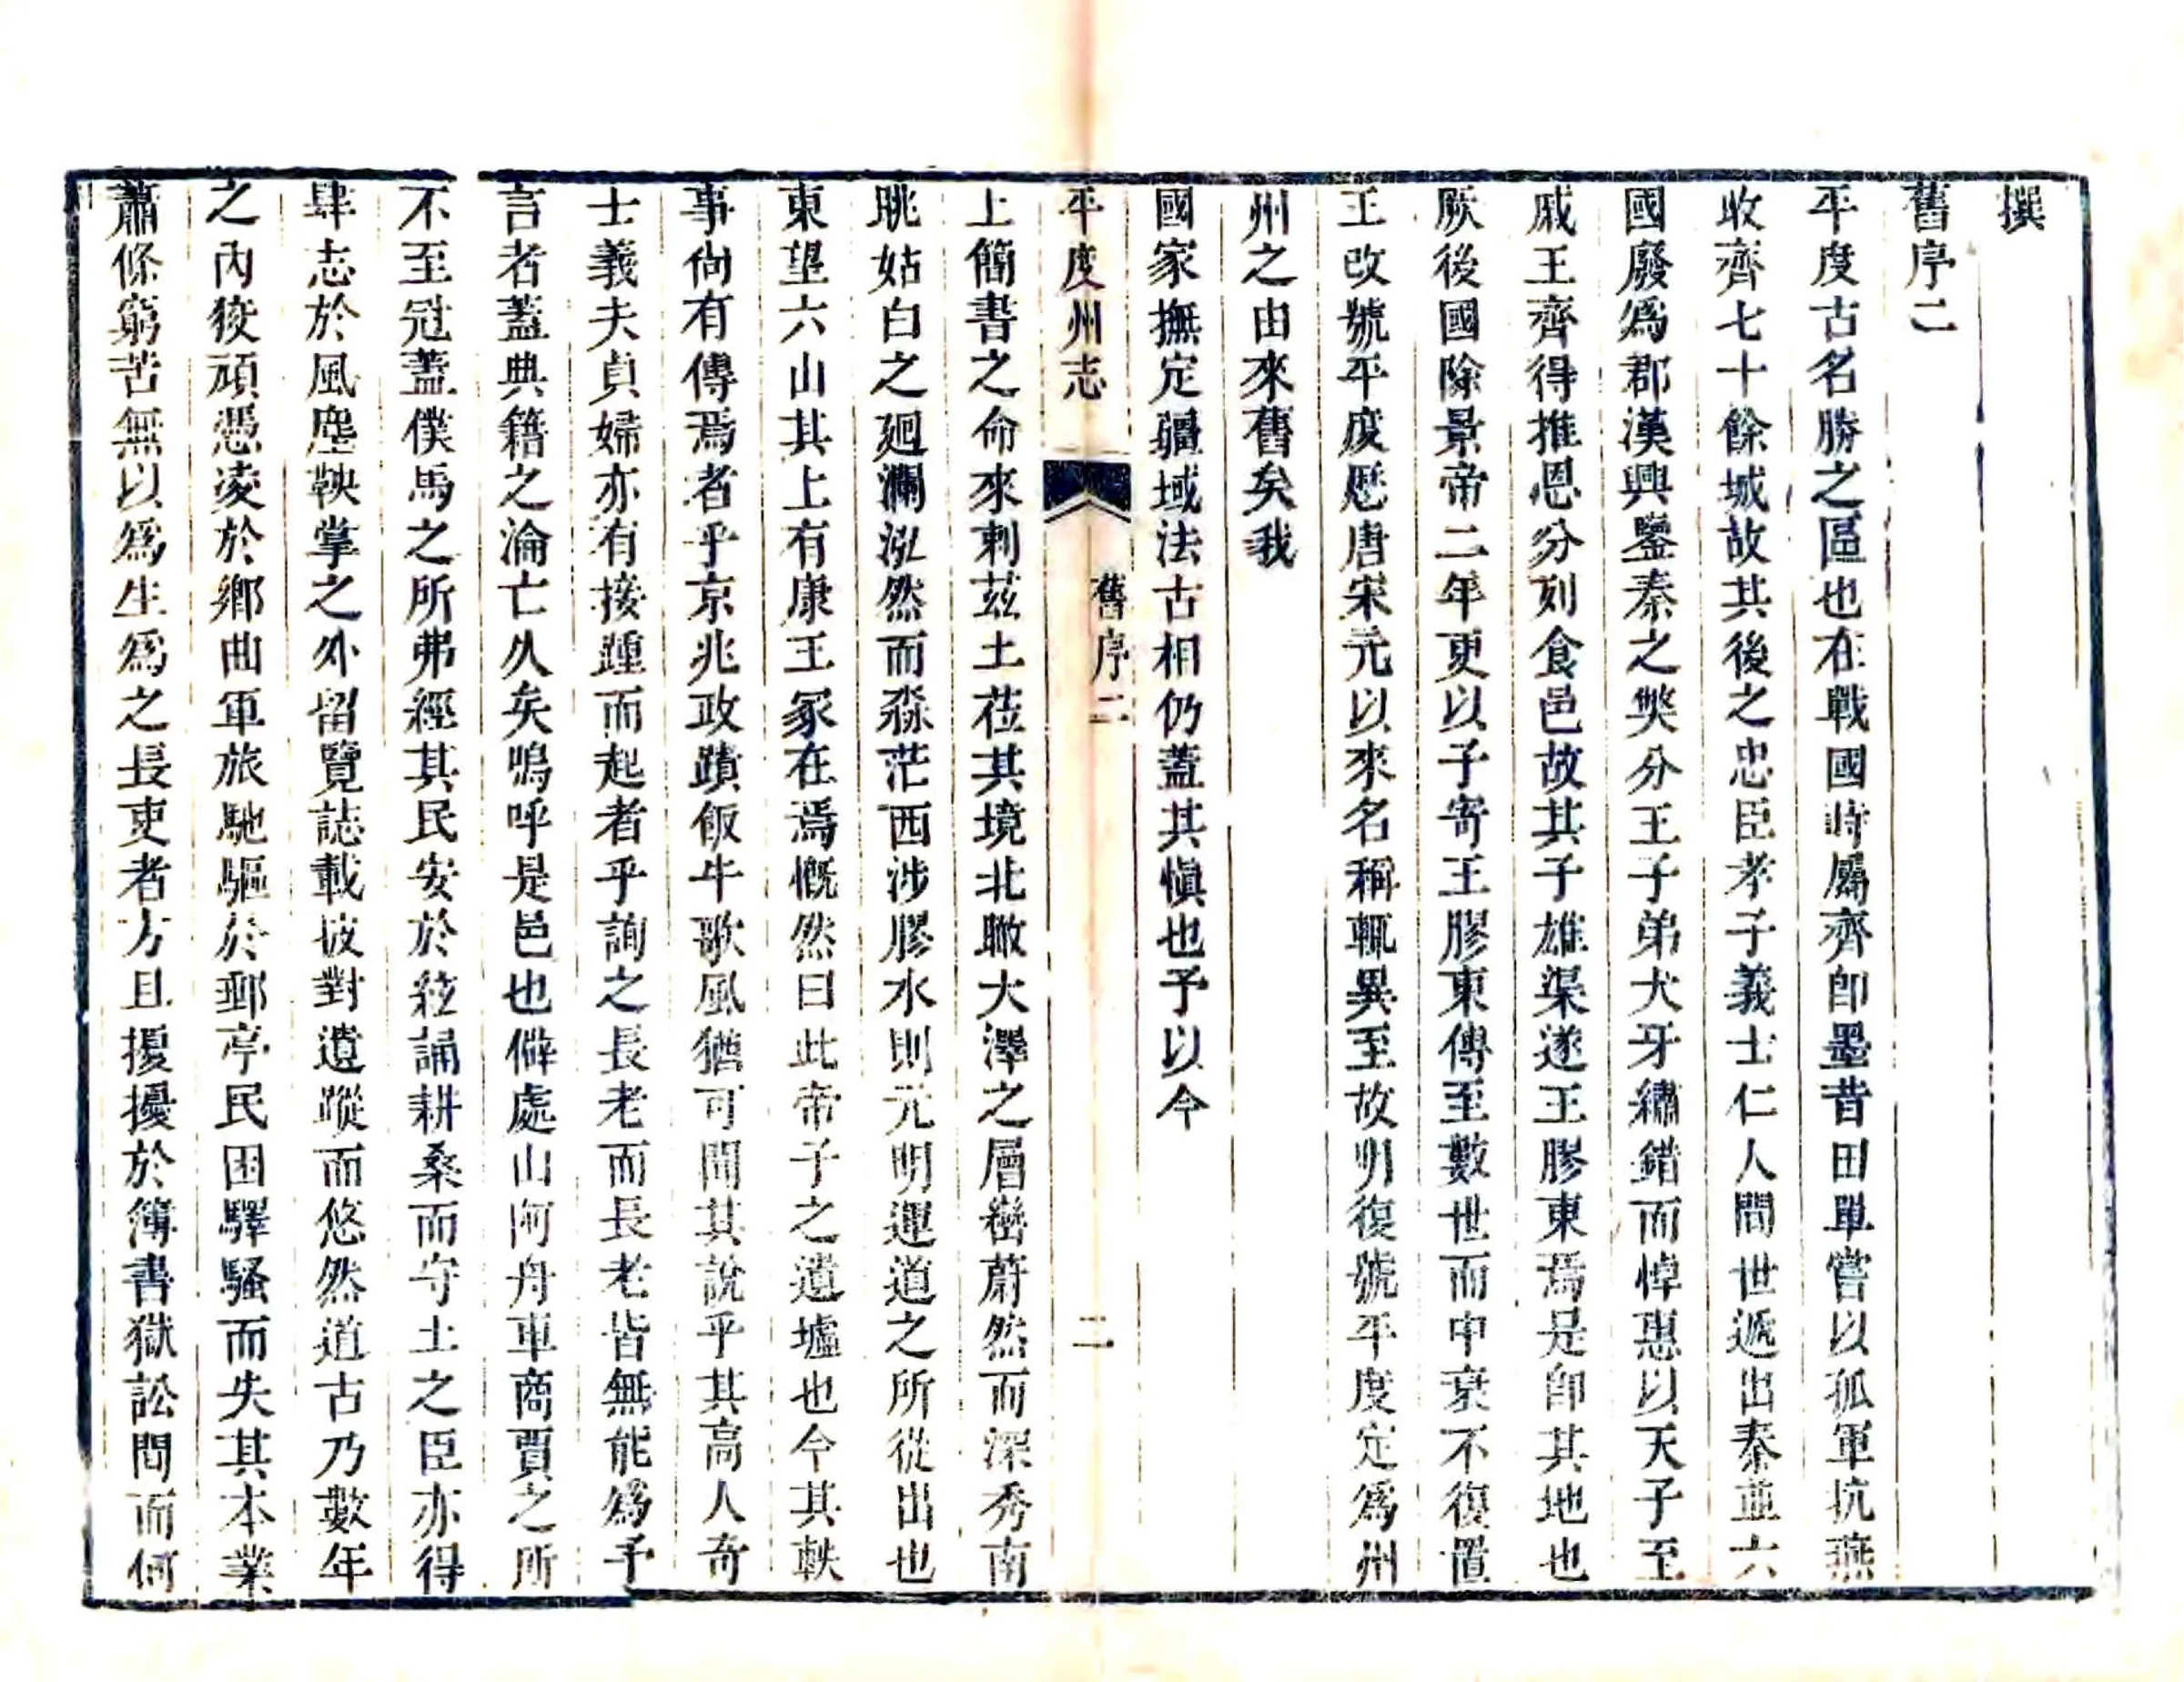 撰
舊序二
平度古名勝之區也在戰國時屬齊即墨昔田單嘗以孤軍抗燕
收齊七十餘城故其後之忠臣孝子義士仁人間世遞出秦並六
國廢爲郡漢興鑒秦之獘分王子弟犬牙繡錯而悼惠以天子至
戚王齊得推恩分列食邑故其子雄渠遂王膠東焉是卽其地也
厥後國除景帝二年更以子寄王膠東傳至數世而中衰不復置
王改號平度歷唐宋元以來名稱輒異至故明復號平度定爲州
州之由來舊矣我
國家撫定疆域法古相仍蓋其愼也予以今
平度州志 舊序二 二
上簡書之命來刺茲土莅其境北瞰大澤之層巒蔚然而深秀南
眺姑白之廻瀾泓然而淼茫西涉膠水則元明運道之所從出也
東望六山其上有康王冢在焉慨然曰此帝子之遺墟也今其軼
事尙有傳焉者乎京兆政蹟飯牛歌風猶可聞其說乎其高人奇
士義夫貞婦亦有接踵而起者乎詢之長老而長老皆無能爲予
言者蓋典籍之淪亡久矣嗚呼是邑也僻處山河舟車商賈之所
不至冠蓋僕馬之所弗經其民安於絃誦耕桑而守土之臣亦得
肆志於風塵鞅掌之外留覽誌載披對遺蹤而悠然道古乃數年
之內狡頑憑凌於鄉曲軍旅馳驅於郵亭民困驛騷而失其本業
蕭條窮苦無以爲生爲之長吏者方且擾擾於簿書獄訟間而何